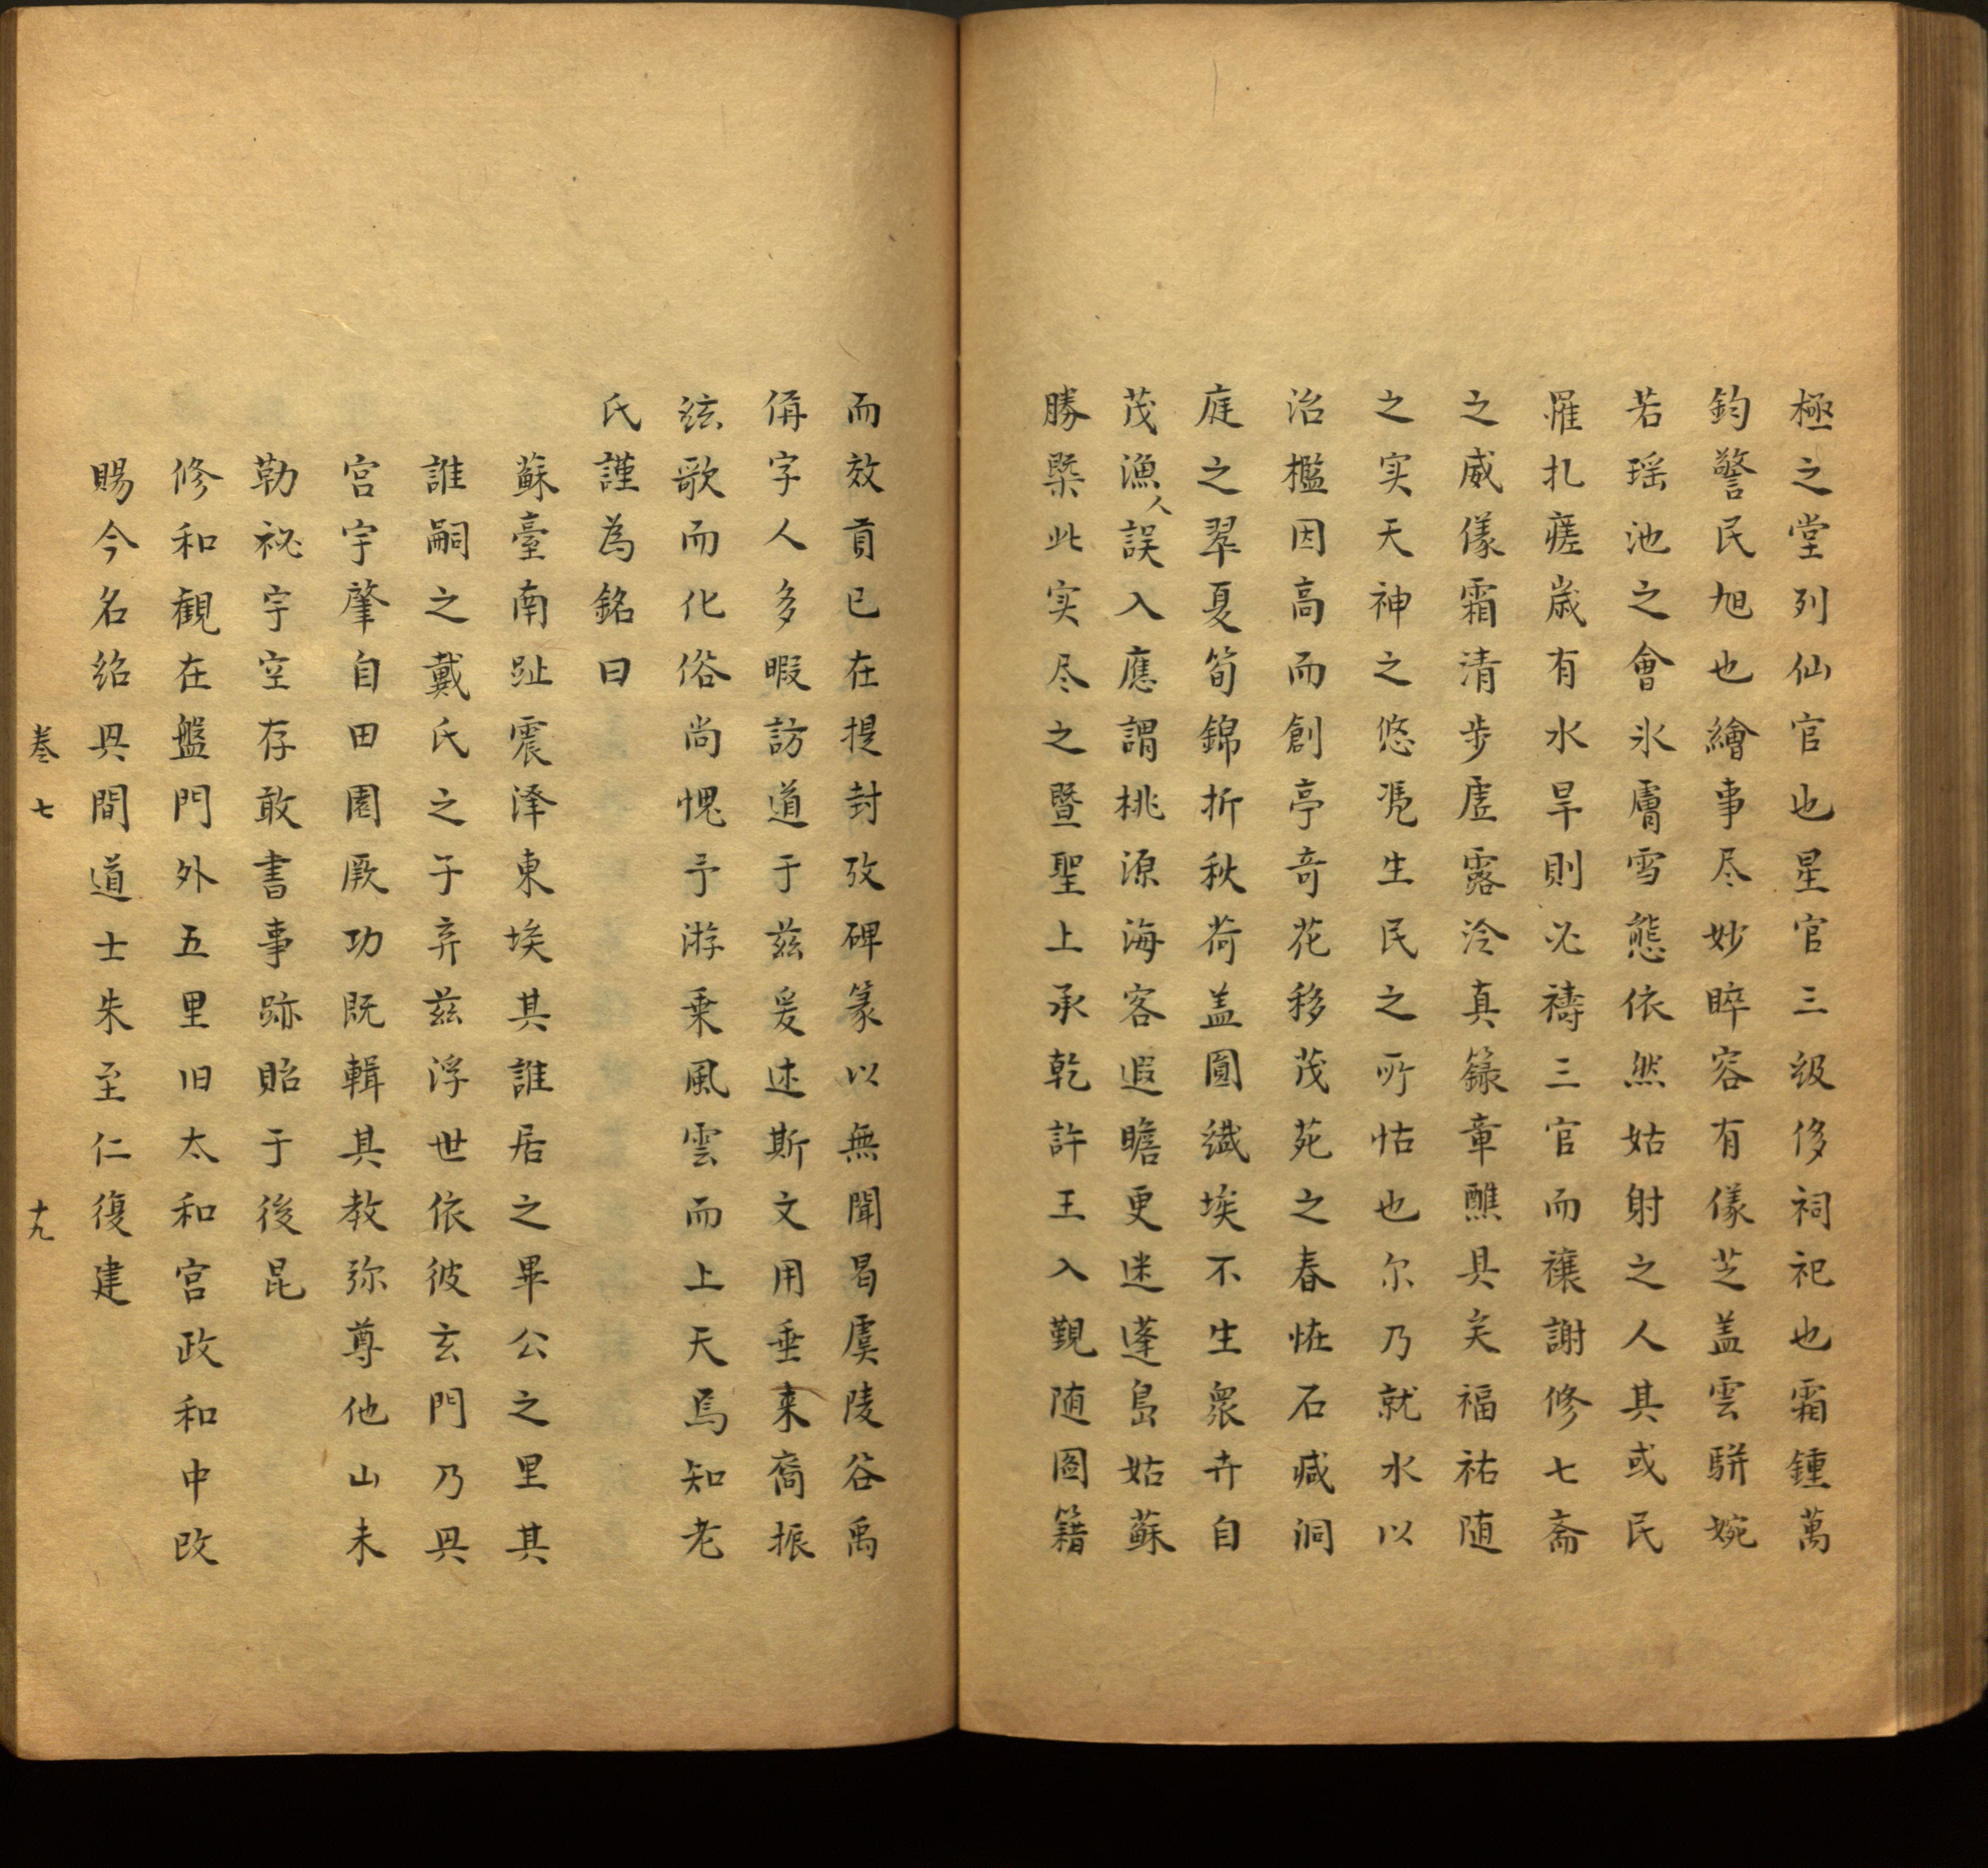 極之堂列仙官也星官三级侈祠祀也霜鍾萬
鈞警民旭也繪事尽妙睟容有儀芝盖雲駢婉
若瑶池之會氷膚雪態依然姑射之人其或民
罹扎瘥歲有水旱則必禱三官而禳謝修七斋
之威儀霜清步虛露泠真籙章醮具矣福祐随
之实天神之悠凭生民之所怙也尔乃就水以
治檻因高而創亭竒花移茂苑之春恠石臧洞
庭之翠夏筍錦折秋荷盖圓纎埃不生衆卉自
茂漁人誤入應謂桃源海客遐瞻更迷蓬島姑蘇
勝槩此实尽之暨聖上承乾許王入覲随圖籍
而效貢已在提封攷碑篆以無聞曷虞陵谷禹
偁字人多暇訪道于兹爰述斯文用垂来裔振
弦歌而化俗尚愧予游乗風雲而上天焉知老
氏謹為銘曰
蘇臺南趾震泽東埃其誰居之畢公之里其
誰嗣之戴氏之子弃兹浮世依彼玄門乃興
宫宇肇自田園厥功既輯其教弥尊他山未
勒祕宇空存敢書事跡貽于後昆
修和觀在盤門外五里旧太和宫政和中改
賜今名紹興間道士朱至仁復建
卷七　十九